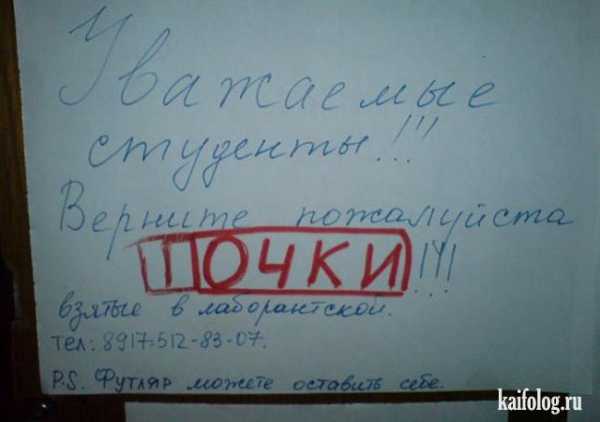 Уважаемые
студенты!!!
Верните пожалуйста
ПОЧКИ!!!
взятые в лаборантской.
тел: 8917-512-83-07.
P.S. Футляр можете оставить себе.
kaifolog.ru